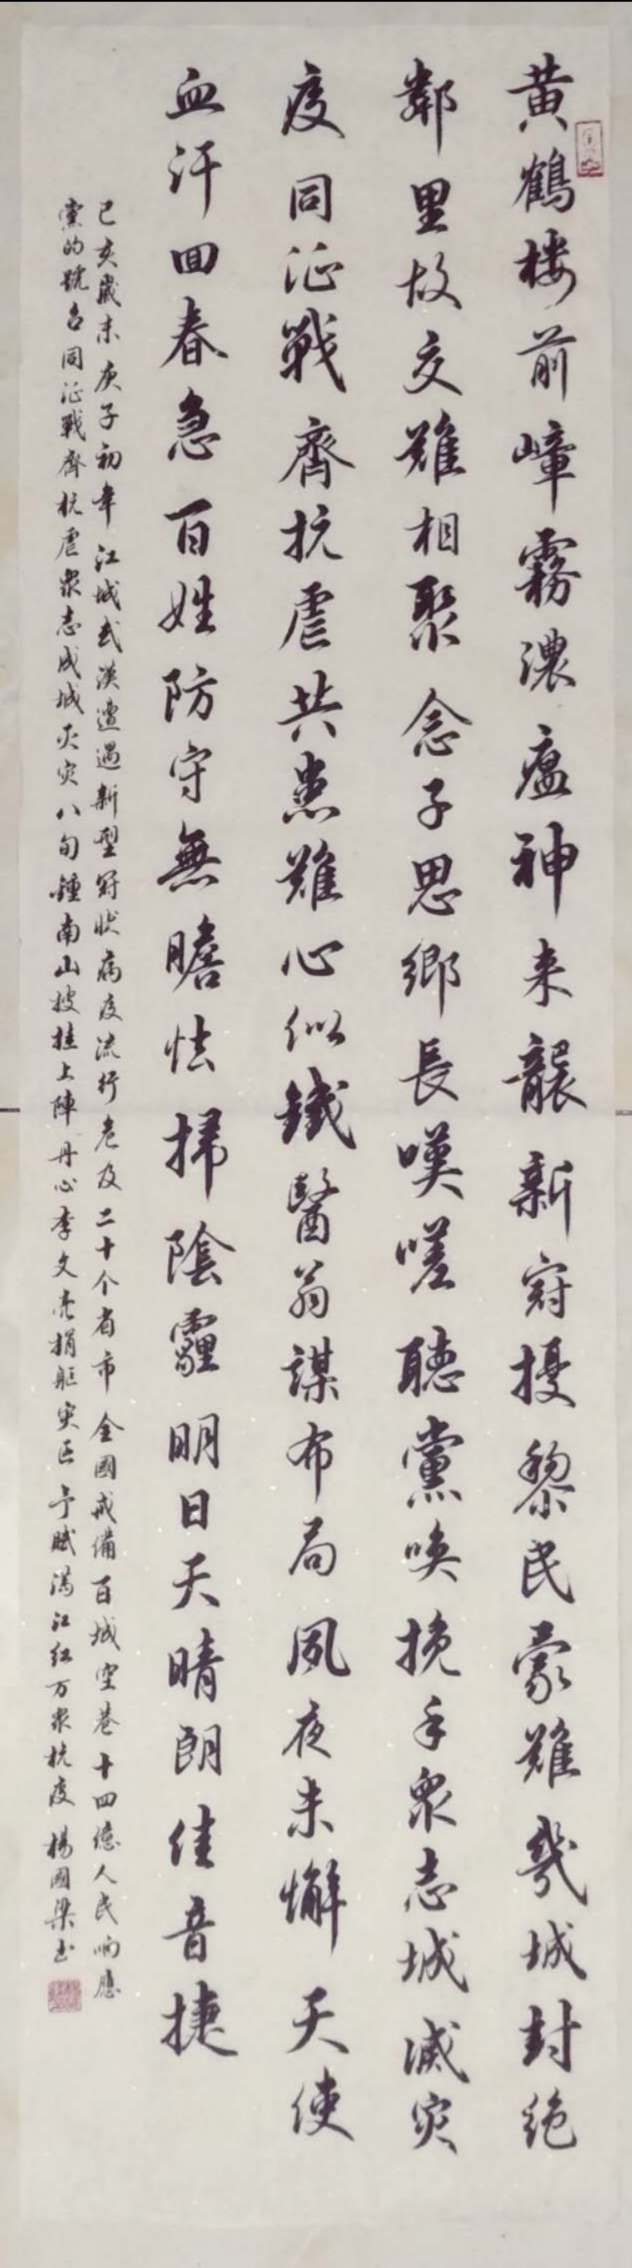 黄鶴楼前嶂霧濃瘟神来襲新冠擾黎民蒙難幾城封绝
鄰里故交難相聚念子思鄉長嘆嗟聽黨唤挽手衆志城滅灾
疫同征戰齊抗虐共患難心似鐵醫翁謀布局夙夜未懈天使
血汗回春急百姓防守無瞻怯掃陰霾明日天晴朗佳音捷
己亥歲末庚子初年江城武漢遭遇新型冠狀病疫流行危及二十个省市全國戒備百城空巷十四億人民响應
黨的號召同征戰齊抗虐衆志成城灭灾八旬鍾南山披挂上陣丹心李文亮捐軀灾区予賦满江红万衆抗疫楊國梁书